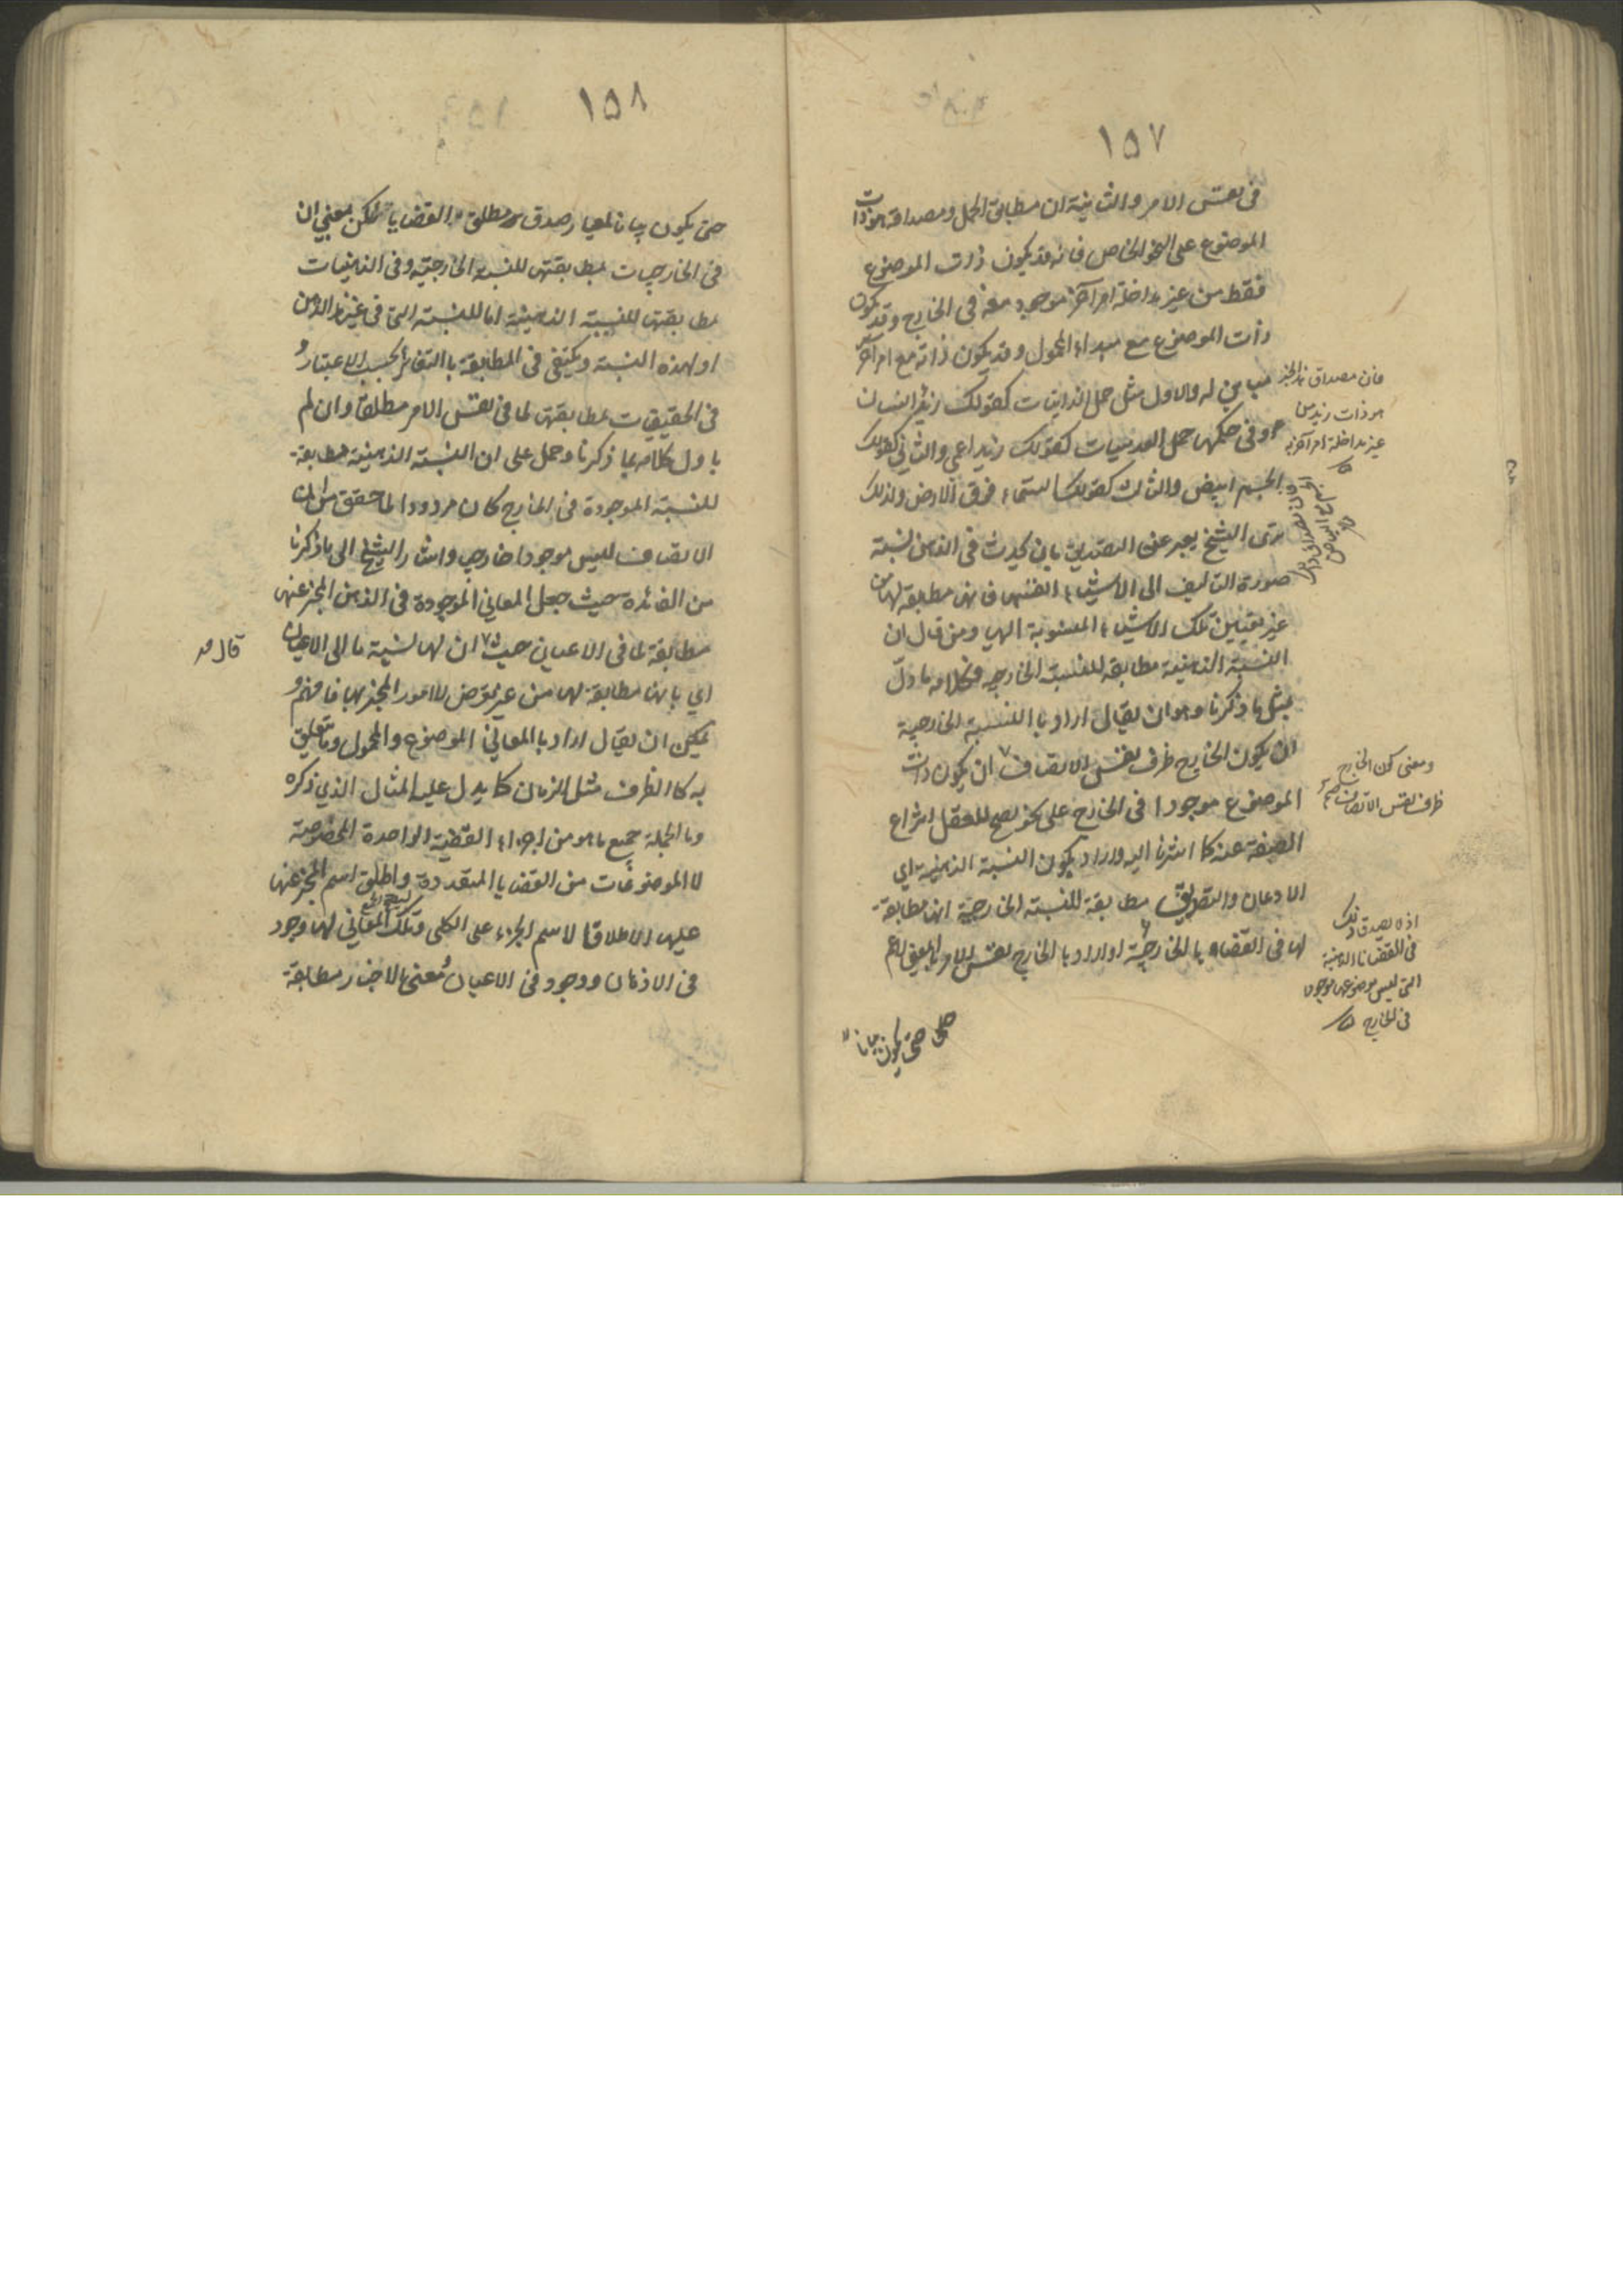 ١٥٧
فى نفس الامر والثانية ان مطابق الحمل ومصداقه هو ذات
الموضوع على النحو الخاص فانه قد يكون ذات الموضوع
فقط من غير مداخلة امر آخر موجود معه فى الخارج وقد يكون
ذات الموضوع مع مبداء المحمول وقد يكون ذاته مع امر آخر
مباين له والاول مثل حمل الذاتيات كقولك زيد انسان
وفى حكمها حمل العدميات كقولك زيد اعمى والثانى كقولك
الجسم ابيض والثالث كقولك السماء فوق الارض ولذلك
ترى الشيخ يعبر عن التصديق بان يحدث فى الذهن نسبة
صورة التاليف الى الاشياء انفسها فانها مطابقة لها من
غير تعيين تلك الاشياء المنسوبة اليها ومن قال ان
النسبة الذهنية مطابقة للنسبة الخارجية فكلامه ماول
بمثل ما ذكرنا وهو ان يقال اراد بالنسبة الخارجية
ان يكون الخارج ظرف نفس الاتصاف ان يكون ذات
الموضوع موجودا فى الخارج على نحو يصح للعقل انتزاع
الصفة عنه كما اشرنا اليه واراد بكون النسبة الذهنية اى
الاذعان والتصديق مطابقة للنسبة الخارجية انها مطابقة
لها فى القضايا الخارجية او اراد بالخارج نفس الامر بالمعنى الاعم
حتى يكون بيانا
فان مصداق هذا الخبر
هو ذات زيد من
غير مداخلة امر آخر فيه
ومعنى كون الخارج
ظرف نفس الاتصاف
اذ لا يصدق ذلك
فى القضايا الذهنية
التى ليس موضوعها موجودا
فى الخارج
١٥٨
حتى يكون بيانا لمعيار صدق مطلق القضايا لكن بمعنى ان
فى الخارجيات بمطابقتها للنسبة الخارجية وفى الذهنيات
بمطابقتها للنسبة الذهنية اما للنسبة التى فى غير هذا الذهن
او لهذه النسبة ويكتفى فى المطابقة بالتغاير بحسب الاعتبار و
فى الحقيقيات بمطابقتها لما فى نفس الامر مطلقا وان لم
ياول كلامه بما ذكرنا وحمل على ان النسبة الذهنية مطابقة
للنسبة الموجودة فى الخارج كان مردودا لما حقق من ان
الاتصاف ليس موجودا خارجيا واشار الشيخ الى ما ذكرنا
من الفائدة حيث جعل المعانى الموجودة فى الذهن المخبر عنها
مطابقة لما فى الاعيان حيث قال ان لها نسبة ما الى الاعيان
اى بانها مطابقة لها من غير تعرض للامور المخبر بها فافهم و
يمكن ان يقال اراد بالمعانى الموضوع والمحمول وما تعلق
به كالظرف مثل الزمان كما يدل عليه المثال الذى ذكره
وبالجملة جميع ما هو من اجزاء القضية الواحدة المخصوصة
لا الموضوعات من القضايا المتعددة واطلق اسم المخبر عنها
عليها اطلاقا لاسم الجزء على الكل وتلك المعانى لها وجود
فى الاذهان ووجود فى الاعيان فمعنى الاخبار مطابقة